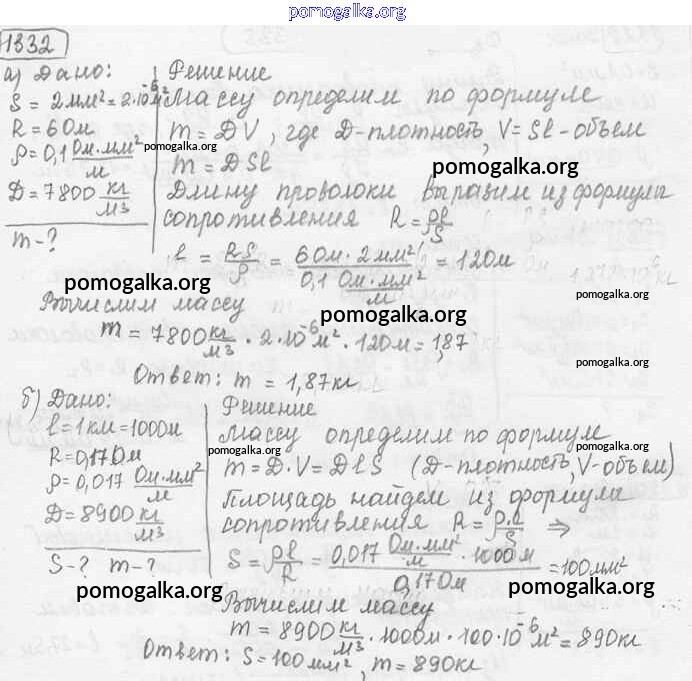 pomogalka.org
1332
а) Дано:
S = 2 мм² = 2·10⁻⁶ м²
R = 6 Ом
ρ = 0,1 Ом·мм²/м
D = 7800 кг/м³
m - ?
Решение
Массу определим по формуле
m = DV, где D-плотность, V = Sl - объем
m = DSl
Длину проволоки выразим из формулы
сопротивления R = ρl/S
l = RS/ρ = 6 Ом · 2 мм² / 0,1 Ом·мм²/м = 120 м
Вычислим массу
m = 7800 кг/м³ · 2·10⁻⁶ м² · 120 м = 1,87
Ответ: m = 1,87 кг
б) Дано:
l = 1 км = 1000 м
R = 0,17 Ом
ρ = 0,017 Ом·мм²/м
D = 8900 кг/м³
S - ? m - ?
Решение
Массу определим по формуле
m = D·V = DlS (D-плотность, V-объем)
Площадь найдем из формулы
сопротивления R = ρ·l/S ⇒
S = ρl/R = 0,017 Ом·мм²/м · 1000 м / 0,17 Ом = 100 мм²
Вычислим массу
m = 8900 кг/м³ · 1000 м · 100·10⁻⁶ м² = 890 кг
Ответ: S = 100 мм², m = 890 кг
pomogalka.org
pomogalka.org
pomogalka.org
pomogalka.org
pomogalka.org
pomogalka.org
pomogalka.org
pomogalka.org
pomogalka.org
pomogalka.org
pomogalka.org
pomogalka.org